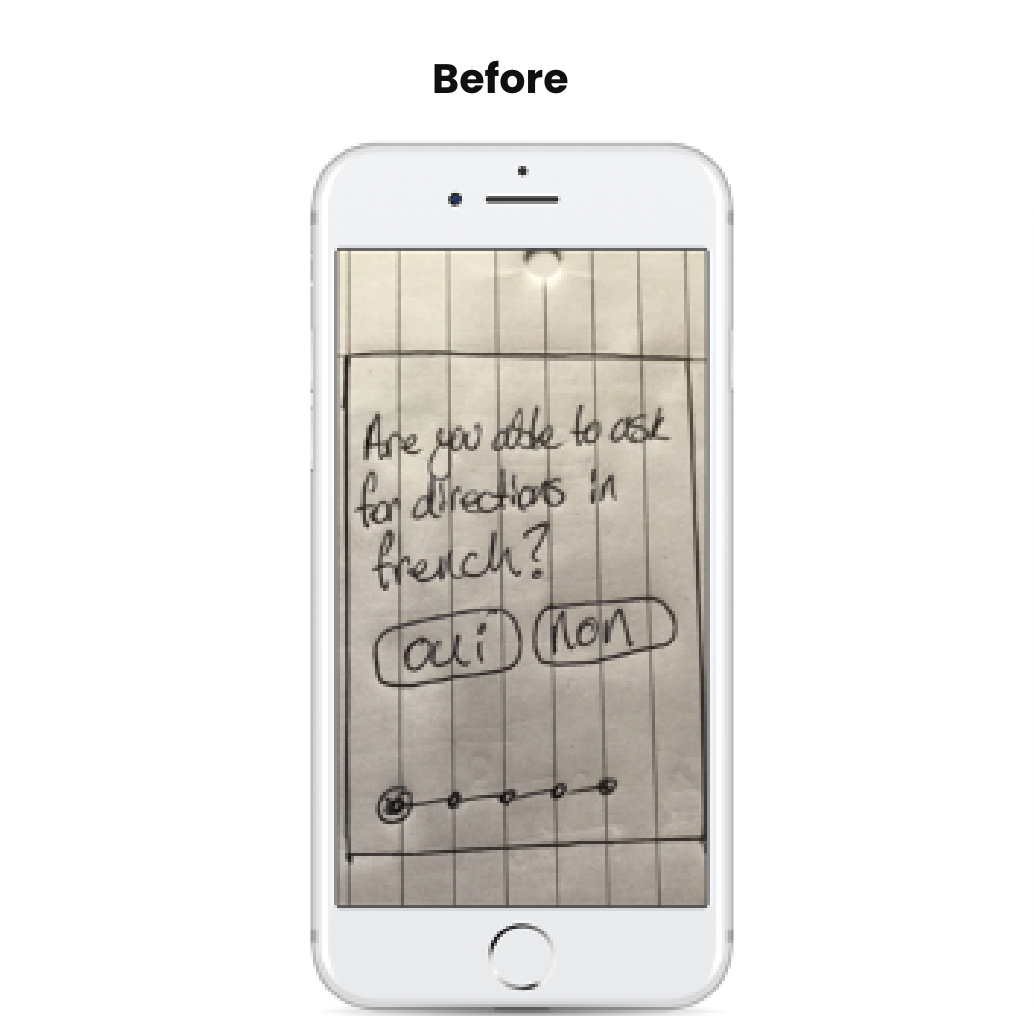 Before
Are you able to ask
for directions in
french?
oui non